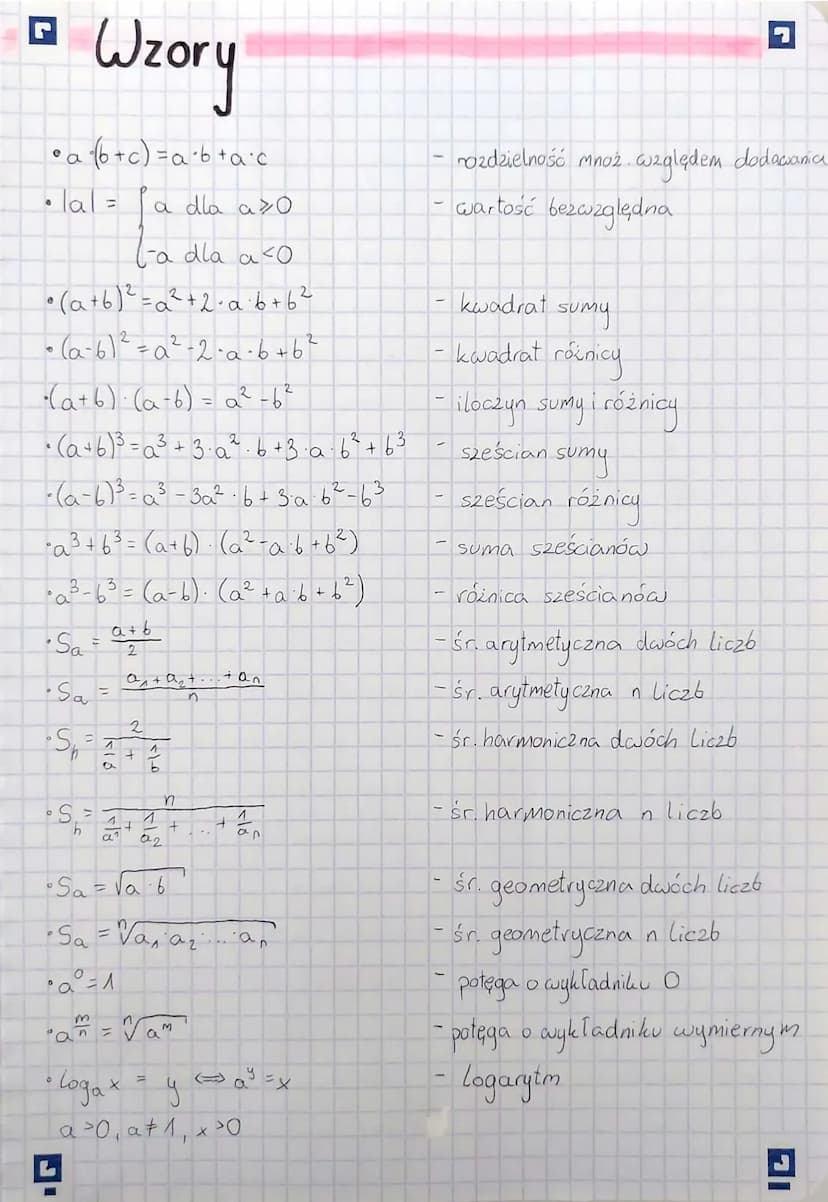 Wzory
• a·(b+c)=a·b+a·c - rozdzielność mnoż. względem dodawania
• |a| = { a dla a≥0 - wartość bezwzględna
{ -a dla a<0
• (a+b)² = a²+2·a·b+b² - kwadrat sumy
• (a-b)² = a²-2·a·b+b² - kwadrat różnicy
• (a+b)·(a-b) = a²-b² - iloczyn sumy i różnicy
• (a+b)³ = a³+3·a²·b+3·a·b²+b³ - sześcian sumy
• (a-b)³ = a³-3a²·b+3·a·b²-b³ - sześcian różnicy
• a³+b³ = (a+b)·(a²-a·b+b²) - suma sześcianów
• a³-b³ = (a-b)·(a²+a·b+b²) - różnica sześcianów
• Sₐ = (a+b)/2 - śr. arytmetyczna dwóch liczb
• Sₐ = (a₁+a₂+...+aₙ)/n - śr. arytmetyczna n liczb
• Sₕ = 2/(1/a + 1/b) - śr. harmoniczna dwóch liczb
• Sₕ = n/(1/a₁ + 1/a₂ + ... + 1/aₙ) - śr. harmoniczna n liczb
• Sₐ = √(a·b) - śr. geometryczna dwóch liczb
• Sₐ = ⁿ√(a₁·a₂·...·aₙ) - śr. geometryczna n liczb
• a⁰=1 - potęga o wykładniku 0
• a^(m/n) = ⁿ√(aᵐ) - potęga o wykładniku wymiernym
• logₐx = y ⟺ aʸ=x - logarytm
a>0, a≠1, x>0